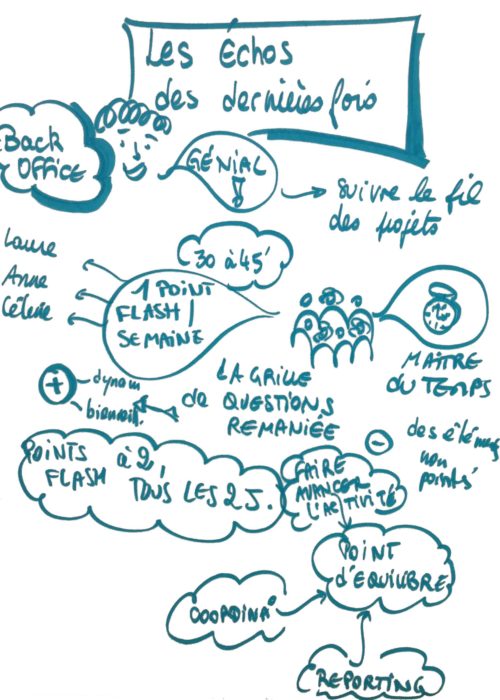 Les Échos
des dernières fois
Back
OFFICE
GÉNIAL
!
suivre le fil
des projets
30 à 45'
Laure
Anne
Céline
1 POINT
FLASH /
SEMAINE
MAÎTRE
DU TEMPS
+
dynam
bienveil.
LA GRILLE
de QUESTIONS
REMANIÉE
-
des élémts
non
pointés
POINTS
FLASH à 2,
TOUS LES 2 J.
FAIRE
AVANCER
L'ACTIVITÉ
POINT
d'EQUILIBRE
COORDINA°
REPORTING